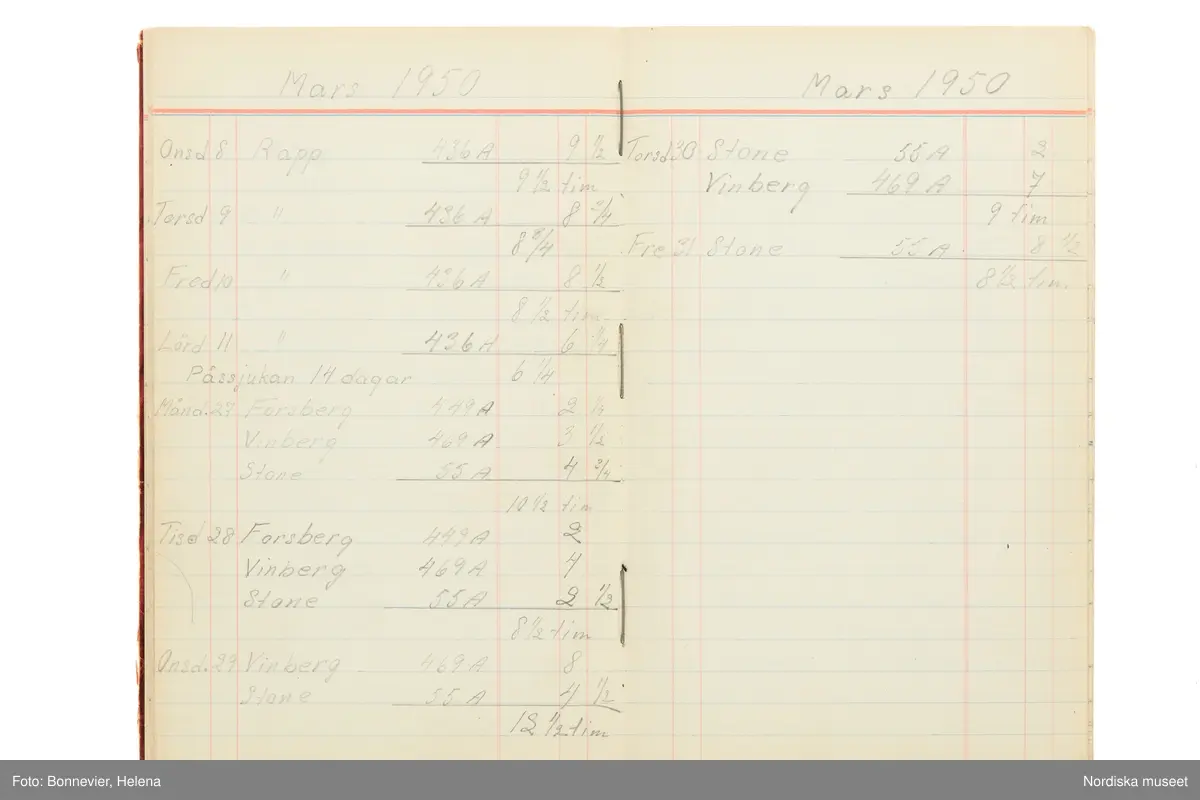 Mars 1950
Onsd 8 Rapp 436 A 9 1/2
9 1/2 tim
Torsd 9 " 436 A 8 3/4
8 3/4
Fred 10 " 436 A 8 1/2
8 1/2 tim
Lörd 11 " 436 A 6 1/4
Påssjukan 14 dagar 6 1/4
Månd. 27 Forsberg 449 A 2 1/4
Vinberg 469 A 3 1/2
Stone 55 A 4 3/4
10 1/2 tim
Tisd 28 Forsberg 449 A 2
Vinberg 469 A 4
Stone 55 A 2 1/2
8 1/2 tim
Onsd. 29 Vinberg 469 A 8
Stone 55 A 4 1/2
12 1/2 tim
Mars 1950
Torsd 30 Stone 55 A 2
Vinberg 469 A 7
9 tim
Fre 31 Stone 55 A 8 1/2
8 1/2 tim.
Foto: Bonnevier, Helena
Nordiska museet